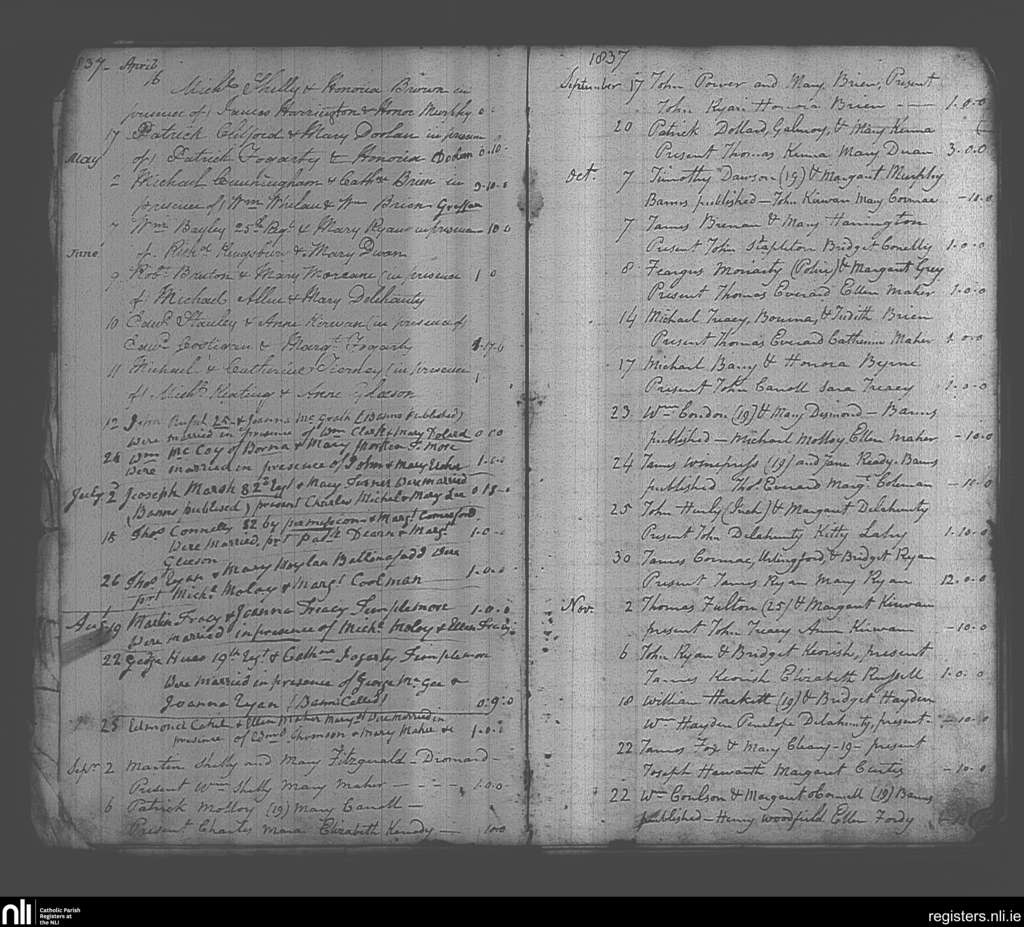 1837 - April
16 Michl Shelly & Honoria Brown in
presence of James Harrington & Honor Murphy
17 Patrick Culford & Mary Doolan in presence
May of Patrick Fogarty & Honoria 0-10-
2 Michael Cunningham & Cathne Brien in 0-10-0
presence of Wm Whelan & Wm Brien
7 Wm Bayley 25th Regt & Mary Ryan in presence 10 0
June of Richd Kingsbury & Mary Dwan
9 Robt Bruton & Mary (in presence 1 0
of) Michael Allen & Mary Delehanty
10 Edwd Stanley & Anne Kerwan (in presence of)
Edwd Costigan & Margt Fogarty
11 Michael & Catherine Tierney (in presence 1
of) Michl Keating & Anne Gleeson
12 John 25 & Joanna McGrath (Banns Published)
were married in presence of Wm Clark & Mary 0
26 Wm McCoy of & Mary T.more
were married in presence of John & Mary 1-0-0
July 2d Joseph Marsh 82d Regt & Mary Turner were married
(Banns published) present Charles Michel & Mary Lee
18 Thos Connelly 82 by permission & Margt Comerford
were married, prt Patk & Margt 1-0-
Gleeson
26 Thos Ryan & Mary Hoylan were
prt Michl Moloy & Margt Coolman 1-0-0
Aug 19 Martin Tracy & Joanna Treacy Templemore 1-0-0
were married in presence of Michl Moloy & Ellen Tracy
22 George 19th Regt & Cathne Fogarty Templemore
were married in presence of George McGee &
Joanna Ryan (Banns Called) 0-9-0
23 Edmond & Ellen Maher were married in
presence of Edmd & Mary Maher 1-0-0
Sepr 2 Martin Shelly and Mary Fitzgerald - Dromard -
Present Wm Shelly Mary Maher - - - - 1-0-0
6 Patrick Molloy (19) Mary Carroll -
Present Charles Mara Elizabeth Kenedy - 1-0-0
1837
September 17 John Power and Mary Brien, Present
John Ryan Honora Brien - - - 1-0-0
20 Patrick Dollard, Galmoy, & Mary Kenna
Present Thomas Kenna Mary Dwan 3-0-0
Oct. 7 Timothy Dawson (19) & Margaret Murphy
Banns published - John Kirwan Mary Cormac -10-0
7 James Brenan & Mary Harrington
Present John Stapleton Bridget Conelly 1-0-0
8 Feargus Moriarty (Police) & Margaret Grey
Present Thomas Everard Ellen Maher 1-0-0
14 Michael Treacy, & Judith Brien
Present Thomas Everard Catherine Maher 1-0-0
17 Michael Barry & Honora Byrne
Present John Carroll Sara Treacy 1-0-0
23 Wm Condon (19) & Mary Desmond - Banns
published - Michael Molloy Ellen Maher -10-0
24 James (19) and Jane Ready - Banns
published Thos Everard Margt Coleman -10-0
25 John Hurly & Margaret Delahunty
Present John Delahunty Kitty 1-10-0
30 James Cormac, Urlingford, & Bridget Ryan
Present James Ryan Mary Ryan 12-0-0
Nov. 2 Thomas Fulton (25) & Margaret Kirwan
present John Treacy Anne Kirwan -10-0
6 John Ryan & Bridget Keorish, present
James Keorish Elizabeth Russell 1-0-0
10 William Hackett (19) & Bridget Hayden
Wm Hayden Penelope Delahunty, present -10-0
22 James Fox & Mary Cleary -19- present
Joseph Haworth Margaret Curtis -10-0
22 Wm Coulson & Margaret oConnell (19) Banns
published - Henry Woodfield Ellen Fordy
nli
Catholic Parish
Registers at
the NLI
registers.nli.ie